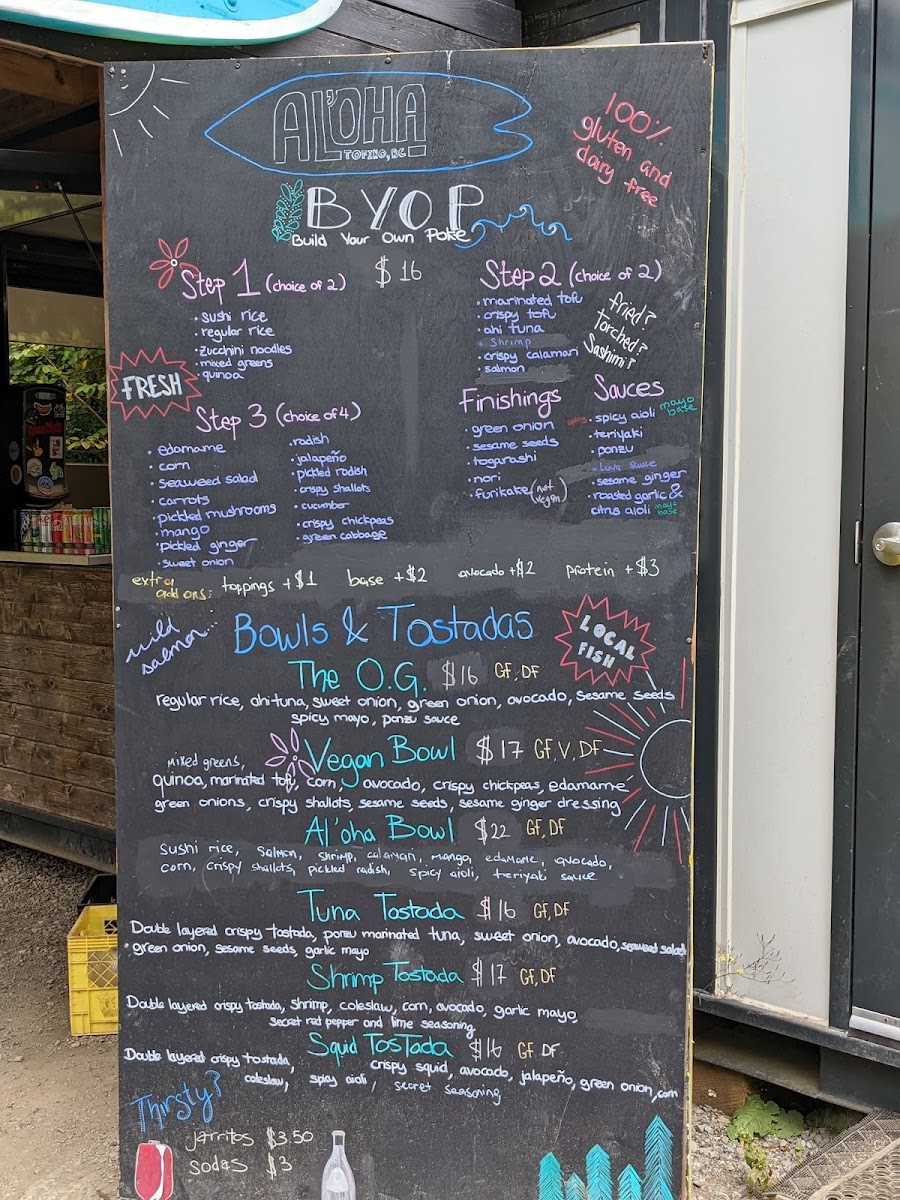 AL'OHA
TOFINO, BC
100%
gluten and
dairy free
BYOP
Build Your Own Poke
$16
Step 1 (choice of 2)
• sushi rice
• regular rice
• zucchini noodles
• mixed greens
• quinoa
FRESH
Step 2 (choice of 2)
• marinated tofu
• crispy tofu
• ahi tuna
• Shrimp
• crispy calamari
• salmon
fried?
Torched?
Sashimi?
Step 3 (choice of 4)
• edamame
• corn
• seaweed salad
• carrots
• pickled mushrooms
• mango
• pickled ginger
• sweet onion
• radish
• jalapeño
• pickled radish
• crispy shallots
• cucumber
• crispy chickpeas
• green cabbage
Finishings
• green onion
• sesame seeds
• togarashi
• nori
• furikake (not vegan)
Sauces
• spicy aioli mayo base
• teriyaki
• ponzu
• Lava sauce
• sesame ginger
• roasted garlic &
citrus aioli mayo base
extra add ons: toppings +$1 base +$2 avocado +$2 protein +$3
wild salmon...
Bowls & Tostadas
LOCAL
FISH
The O.G. $16 GF, DF
regular rice, ahi tuna, sweet onion, green onion, avocado, sesame seeds
spicy mayo, ponzu sauce
Vegan Bowl $17 GF, V, DF
mixed greens,
quinoa, marinated tofu, corn, avocado, crispy chickpeas, edamame
green onions, crispy shallots, sesame seeds, sesame ginger dressing
Al'oha Bowl $22 GF, DF
Sushi rice, Salmon, shrimp, calamari, mango, edamame, avocado,
corn, crispy shallots, pickled radish, spicy aioli, teriyaki sauce
Tuna Tostada $16 GF, DF
Double layered crispy tostada, ponzu marinated tuna, sweet onion, avocado, seaweed salad
• green onion, sesame seeds, garlic mayo
Shrimp Tostada $17 GF, DF
Double layered crispy tostada, shrimp, coleslaw, corn, avocado, garlic mayo,
secret red pepper and lime seasoning
Squid Tostada $16 GF DF
Double layered crispy tostada, crispy squid, avocado, jalapeño, green onion, corn
coleslaw, spicy aioli, secret seasoning
Thirsty?
jarritos $3.50
sodas $3